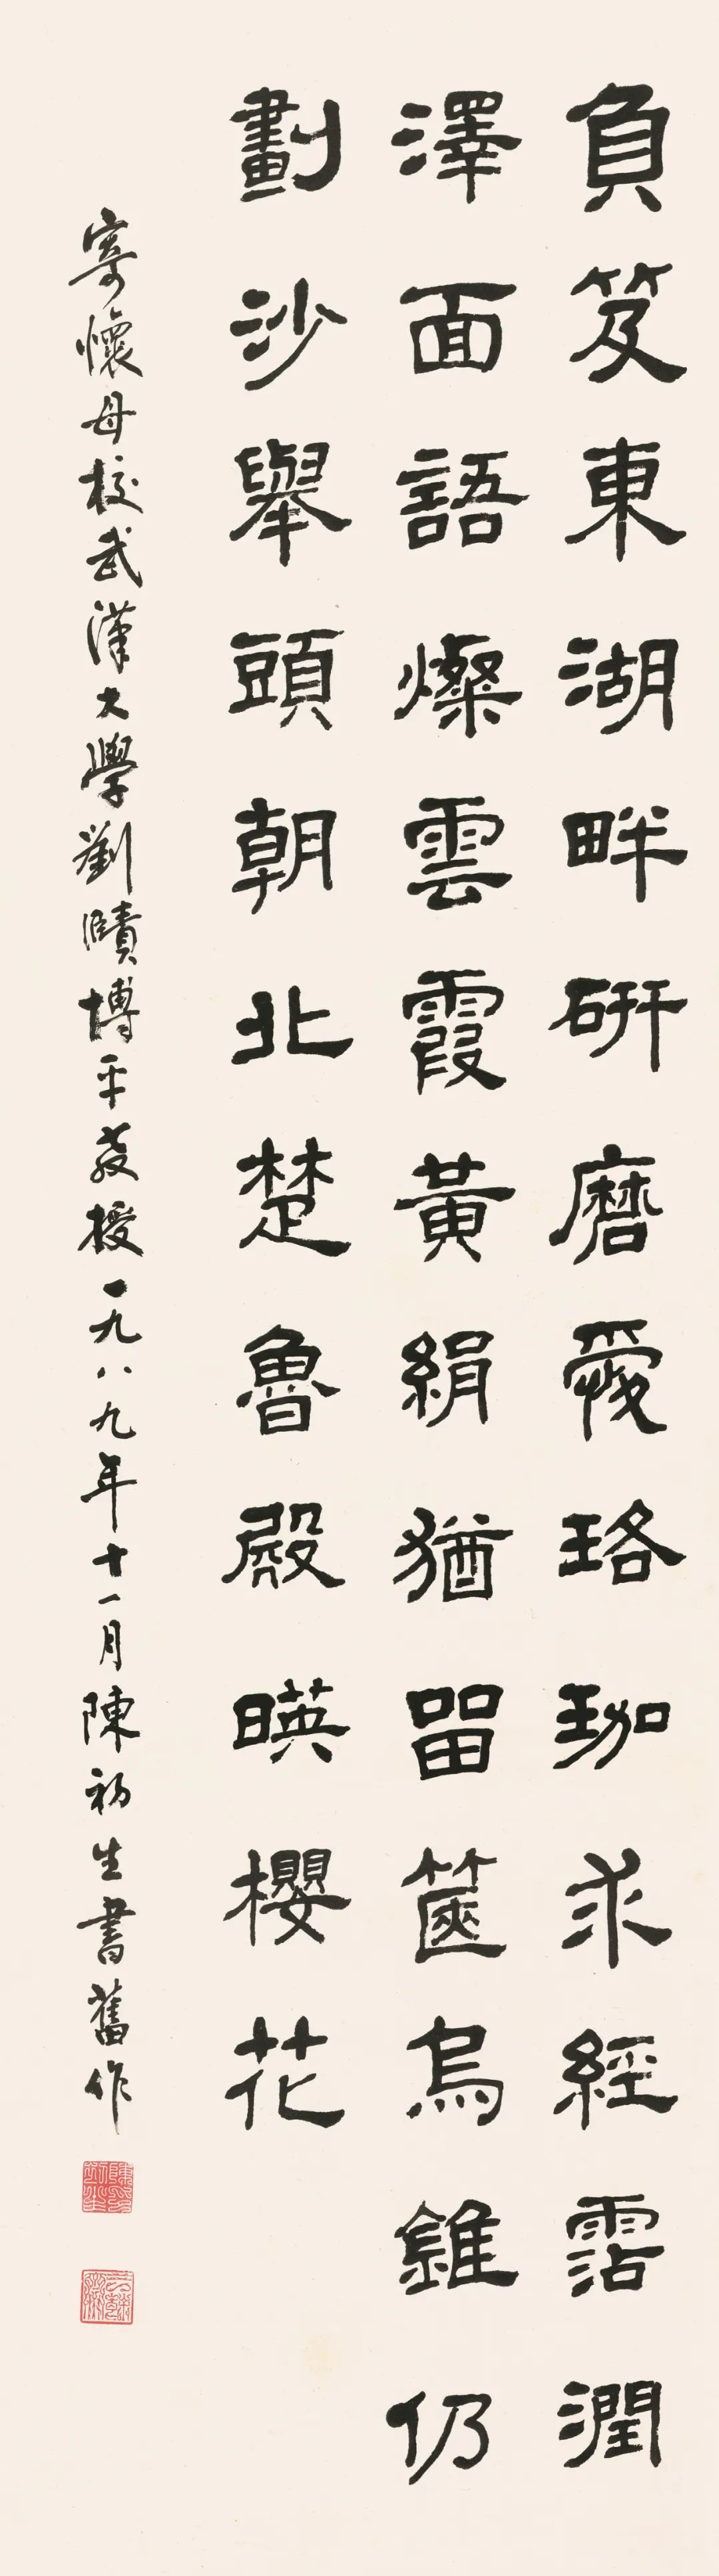 負笈東湖畔研磨愛珞珈求經霑潤
澤面語燦雲霞黃絹猶留篋烏錐仍
劃沙舉頭朝北楚魯殿暎櫻花
寄懷母校武漢大學劉賾博平教授一九八九年十一月陳初生書舊作